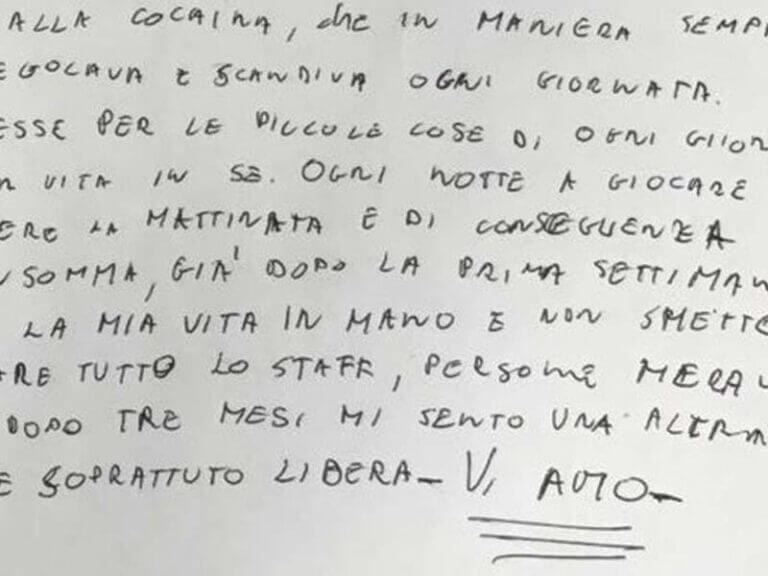 ALLA COCAINA, che IN MANIERA SEMPR
EGOLAVA E SCANDIVA OGNI GIORNATA.
ESSE PER LE PICCOLE COSE DI OGNI GIOR
VITA IN SE. OGNI NOTTE A GIOCARE
ERE LA MATTINATA E DI CONSEGUENZA
SOMMA, GIA' DOPO LA PRIMA SETTIMAN
LA MIA VITA IN MANO E NON SMETTE
ARE TUTTO LO STAFF, PERSONE MERAV
DOPO TRE MESI MI SENTO UNA ALTRA
E SOPRATTUTO LIBERA- VI AMO-